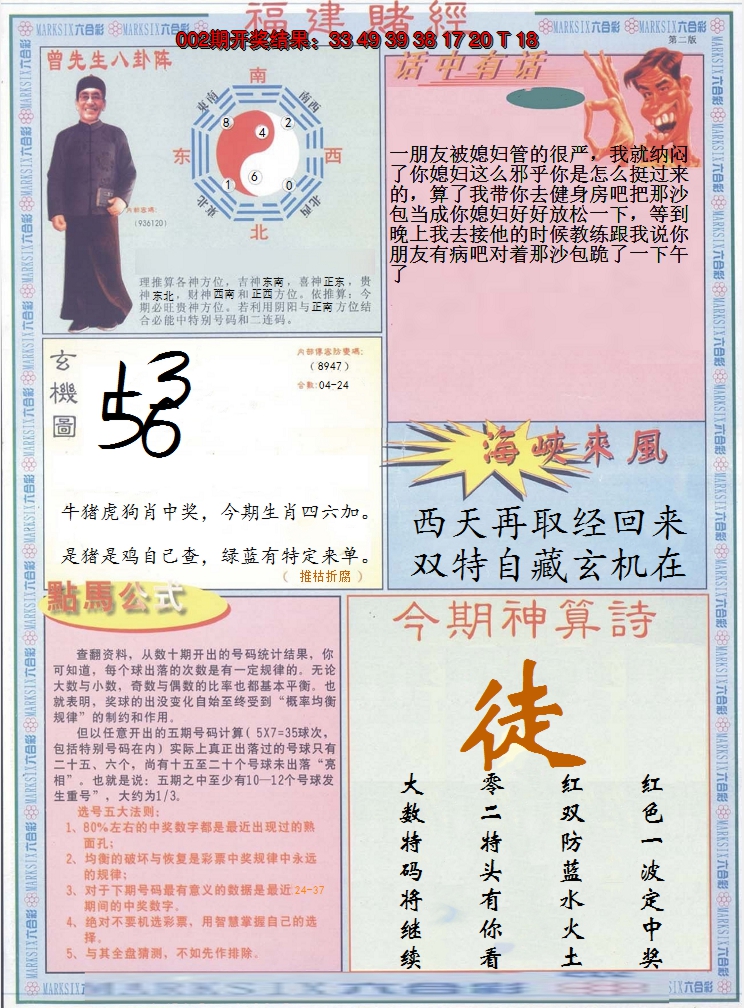 福建賭經
002期开奖结果：33 49 39 38 17 20 T 18
MARKSIX六合彩
第二版
曾先生八卦阵
南
东南
南西
8
2
4
东
西
6
1
0
东北
北西
北
内部密碼：
（936120）
理推算各神方位，吉神东南，喜神正东，贵
神东北，财神西南和正西方位。依推算：今
期必旺贵神方位。若利用阴阳与正南方位结
合必能中特别号码和二连码。
话中有话
一朋友被媳妇管的很严，我就纳闷
了你媳妇这么邪乎你是怎么挺过来
的，算了我带你去健身房吧把那沙
包当成你媳妇好好放松一下，等到
晚上我去接他的时候教练跟我说你
朋友有病吧对着那沙包跪了一下午
了
玄機圖
内部傳密防變碼：
（8947）
合数：04-24
13
56
牛猪虎狗肖中奖，今期生肖四六加。
是猪是鸡自己查，绿蓝有特定来单。
（推枯折腐）
海峽來風
西天再取经回来
双特自藏玄机在
點馬公式
查翻资料，从数十期开出的号码统计结果，你
可知道，每个球出落的次数是有一定规律的。无论
大数与小数，奇数与偶数的比率也都基本平衡。也
就表明，奖球的出没变化自始至终受到“概率均衡
规律”的制约和作用。
但以任意开出的五期号码计算（5X7=35球次，
包括特别号码在内）实际上真正出落过的号球只有
二十五、六个，尚有十五至二十个号球未出落“亮
相”。也就是说：五期之中至少有10—12个号球发
生重号”，大约为1/3。
选号五大法则：
1、80%左右的中奖数字都是最近出现过的熟
面孔；
2、均衡的破坏与恢复是彩票中奖规律中永远
的规律；
3、对于下期号码最有意义的数据是最近24-37
期间的中奖数字。
4、绝对不要机选彩票，用智慧掌握自己的选
择。
5、与其全盘猜测，不如先作排除。
今期神算詩
徒
大数特码将继续
零二特头有你看
红双防蓝水火土
红色一波定中奖